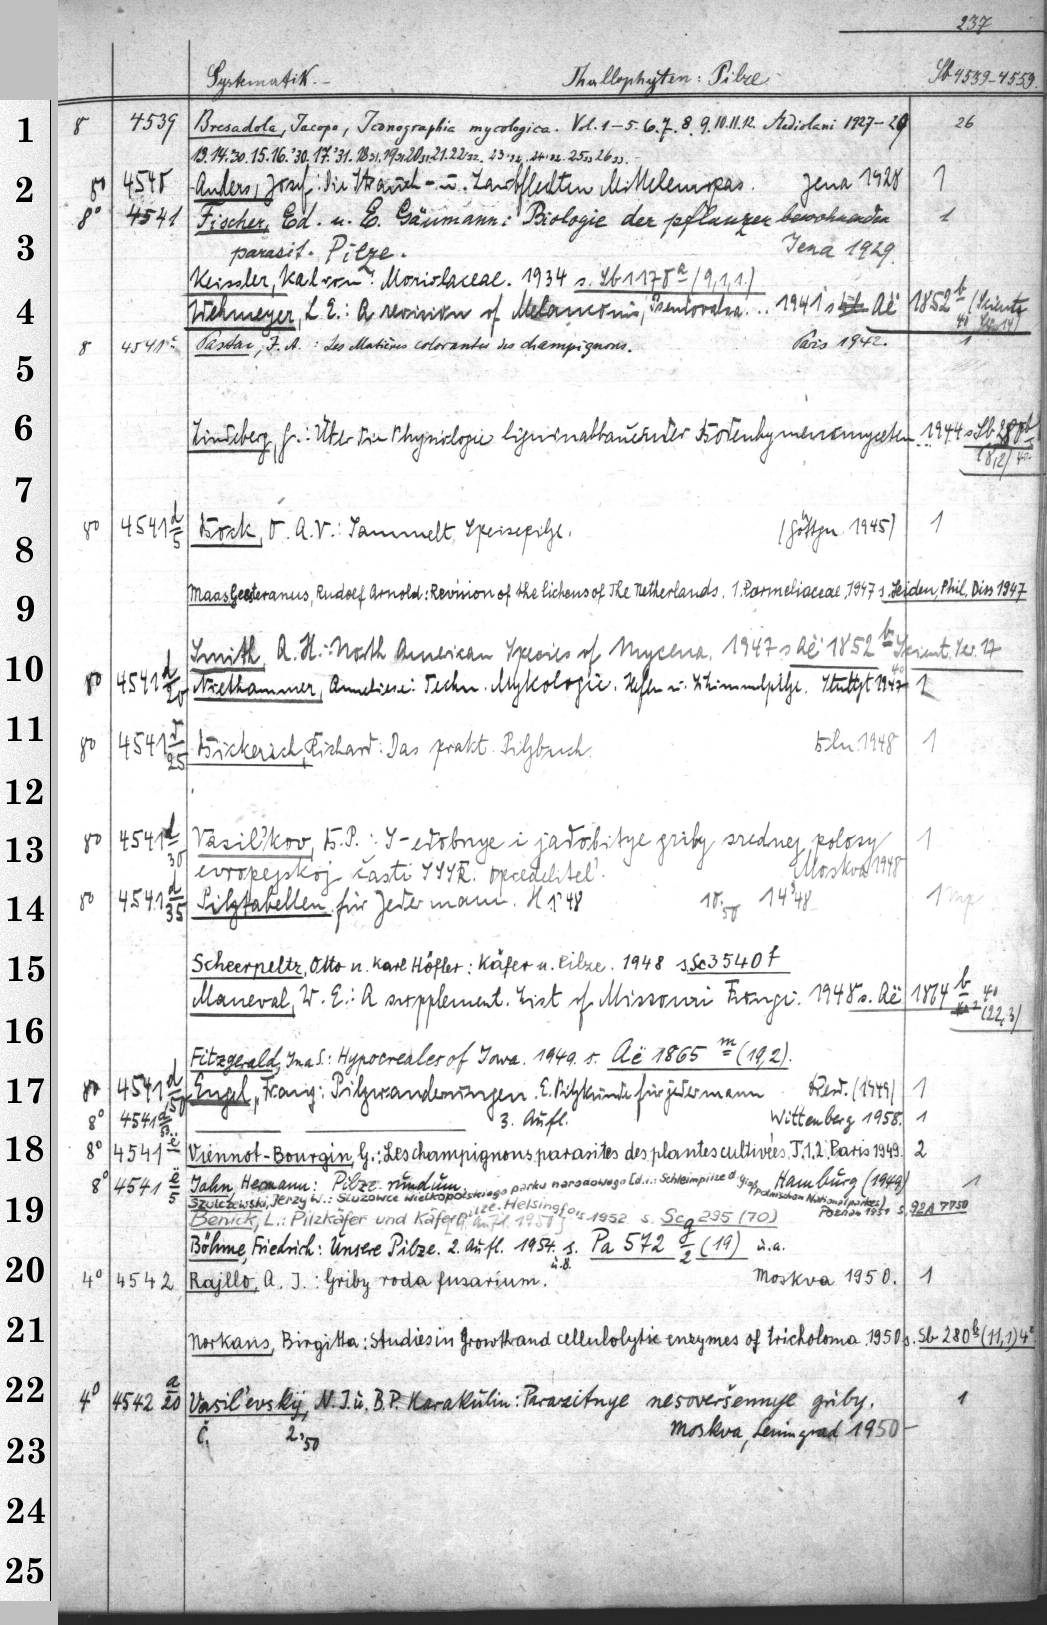 237
Systematik. Thallophyten: Pilze Sb 4539-4559.
1 8 4539 Bresadola, Jacopo, Iconographia mycologica. Vol. 1-5. 6. 7. 8. 9. 10. 11. 12. Mediolani 1927-29 26
13. 14. '30. 15. 16. '30. 17. '31. 18 31. 19 31 20 31 21. 22 '32. 23 '32. 24 '32. 25 33 26 33.
2 8° 4540 Anders, Josef: Die Strauch- u. Laubflechten Mitteleuropas. Jena 1928 1
8° 4541 Fischer, Ed. u. E. Gäumann: Biologie der pflanzen bewohnenden 1
3 parasit. Pilze. Jena 1929.
Keissler, Karl von: Moriolaceae. 1934 s. Sb 1178 a (9,1,1.)
4 Wehmeyer, L. E.: A revision of Melanconis, Pseudovalsa... 1941 s Aë 1852 b (Scient. Ser. 14) 4°
8 4541 c Pastac, I. A.: Les Matières colorantes des champignons. Paris 1942. 1
5
6 Lindeberg, G.: Über die Physiologie ligninabbauender Bodenhymenomyceten 1944 s Sb 280 b (8,2) 4°
7
8° 4541 d/5 Bock, O. A. V.: Sammelt Speisepilze. (Göttgn 1945) 1
8
9 Maas Geesteranus, Rudolf Arnold: Revision of the lichens of The Netherlands. 1. Parmeliaceae. 1947 s. Leiden, Phil. Diss 1947
Smith, A. H.: North American Species of Mycena. 1947 s Aë 1852 b Scient. Ser. 17 4°
10 8° 4541 d/20 Niethammer, Anneliese: Techn. Mykologie. Hefen u. Schimmelpilze. Stuttgt 1947 1
11 8° 4541 d/25 Bickerich, Richard: Das prakt. Pilzbuch. Bln. 1948 1
12
13 8° 4541 d/30 Vasil'kov, B. P.: S-edobnye i jadovitye griby srednej polosy 1
evropejskoj časti SSSR. opredelitel'. Moskva 1948
14 8° 4541 d/35 Pilztabellen für Jedermann. H 1 '48 10. 50 14 '48 1
15 Scheerpeltz, Otto u. Karl Höfler: Käfer u. Pilze. 1948 s. Sc 3540 f
Maneval, W. E.: A supplement. List of Missouri Fungi. 1948 s. Aë 1864 b 4° (22,3)
16
Fitzgerald, Ina S.: Hypocreales of Iowa. 1949. s. Aë 1865 m (19,2).
17 8° 4541 d/50 Engel, Franz: Pilzwanderungen. E. Pilzkunde für jedermann (1949) 1
8° 4541 d/50 3. Aufl. Wittenberg 1958. 1
18 8° 4541 e Viennot-Bourgin, G.: Les champignons parasites des plantes cultivées. T. 1. 2. Paris 1949. 2
8° 4541 e/5 Jahn, Hermann: Pilze rundum. Hamburg (1949) 1
19 Szulczewski, Jerzy W.: Śluzowce wielkopolskiego parku narodowego [d. i.: Schleimpilze d. Polnischen Nationalparkes] Poznań 1951 s. 92 A 7750
Benick, L.: Pilzkäfer und Käferpilze. Helsingfors 1952 s. Sc g 295 (70)
Böhme, Friedrich: Unsere Pilze. 2. Aufl. 1954. s. Pa 572 g/2 (19) u. a.
20 4° 4542 Rajllo, A. I.: Griby roda fusarium. Moskva 1950. 1
21 Norkans, Birgitta: Studies in Growth and cellulolytic enzymes of tricholoma. 1950 s. Sb 280 b (11,1) 4°
22 4° 4542 a/20 Vasil'evskij, N. I. u. B. P. Karakulin: Parazitnye nesoveršennye griby. 1
Č. 2.'50 Moskva, Leningrad 1950-
23
24
25